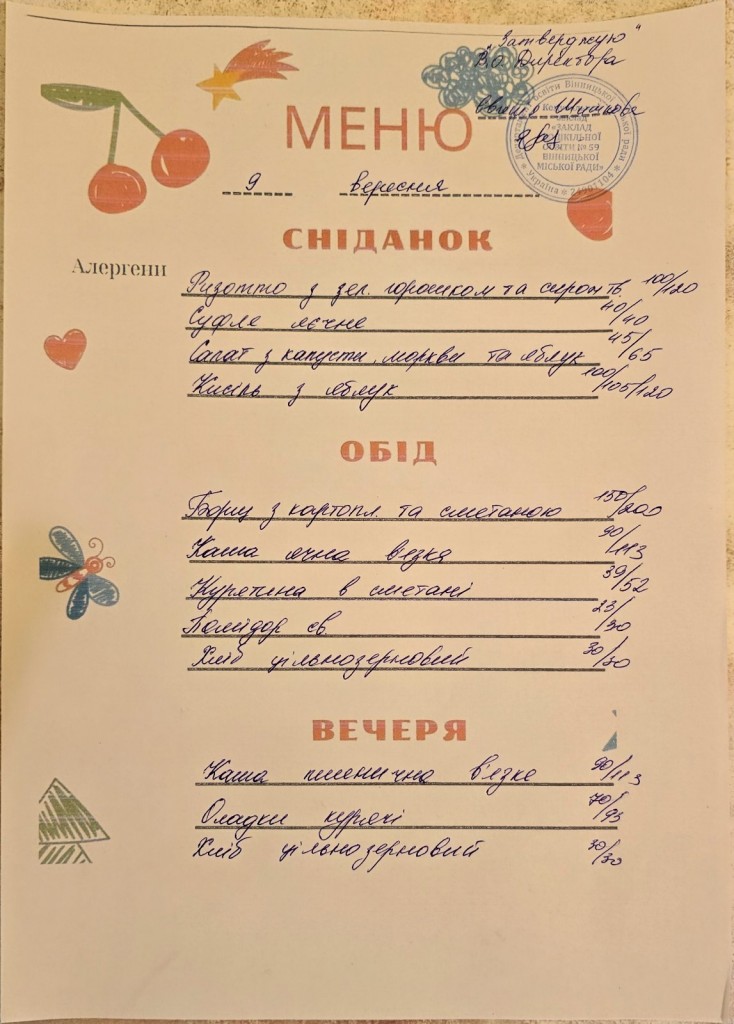 "Затверджую"
В.о. Директора
МЕНЮ
ЗАКЛАД
ДОШКІЛЬНОЇ
ОСВІТИ № 59
ВІННИЦЬКОЇ
МІСЬКОЇ РАДИ»
9 вересня
СНІДАНОК
Алергени
Ризотто з зел. горошком та сиром тв. 100/120
Суфле яєчне 40/40
Салат з капусти, моркви та яблук 45/65
Кисіль з яблук 100/105/120
ОБІД
Борщ з картопл. та сметаною 150/200
Каша ячна в'язка 90/113
Курятина в сметані 39/52
Помідор св. 23/30
Хліб цільнозерновий 30/30
ВЕЧЕРЯ
Каша пшенична в'язка 90/113
Оладки курячі 70/93
Хліб цільнозерновий 30/30